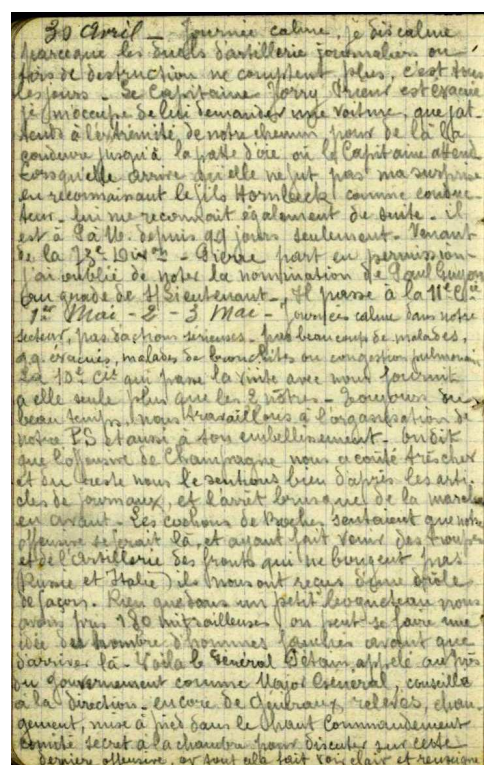 30 Avril - Journée calme, je dis calme
parceque les duels d'artillerie journaliers ou
tirs de destruction ne comptent plus, c'est tous
les jours - Le Capitaine Jorry Prieur est évacué
je m'occupe de lui demander une voiture, que j'at-
tends à l'extrémité de notre chemin pour de là la
conduire jusqu'à la patte d'oie où le Capitaine attend
Lorsqu'elle arrive qu'elle ne fut pas ma surprise
en reconnaissant le fils Hornbeck comme conduc-
teur - lui me reconnait également de suite - il
est à depuis 99 jours seulement - Venant
de la 73e Divon - Pierre part en permission -
j'ai oublié de noter la nomination de Paul Guyon
au grade de S/Lieutenant - Il passe à la 11e Cie
1er Mai - 2 - 3 Mai - Journées calme dans notre
secteur, pas d'actions sérieuses - pas beaucoup de malades,
qq. évacués, malades de bronchites ou congestion pulmonaire
La 10e Cie qui passe la visite avec nous fournit
à elle seule plus que les 2 nôtres - Toujours du
beau temps, nous travaillons à l'organisation de
notre PS et aussi à son embellissement - On dit
que l'offensive de Champagne nous a couté très cher
et du reste nous le sentions bien d'après les arti-
cles de journaux, et l'arrêt brusque de la marche
en avant - Les cochons de Boches sentaient que notre
offensive se ferait là, et ayant fait venir des troupes
et de l'artillerie des fronts qui ne bougent pas
(Russie et Italie) ils nous ont reçus d'une drôle
de façon. Rien que dans un petit boqueteau nous
avons pris 180 mitrailleuses, on peut se faire une
idée du nombre d'hommes fauchés avant que
d'arriver là - Voilà le Général Pétain appelé auprès
du gouvernement comme Major Général, conseille
à la direction - encore de Généraux relevés, chan-
gement, mise à pied dans le haut Commandement
comité secret à la chambre pour discuter sur cette
dernière offensive, or tout cela fait voir clair et renseigne